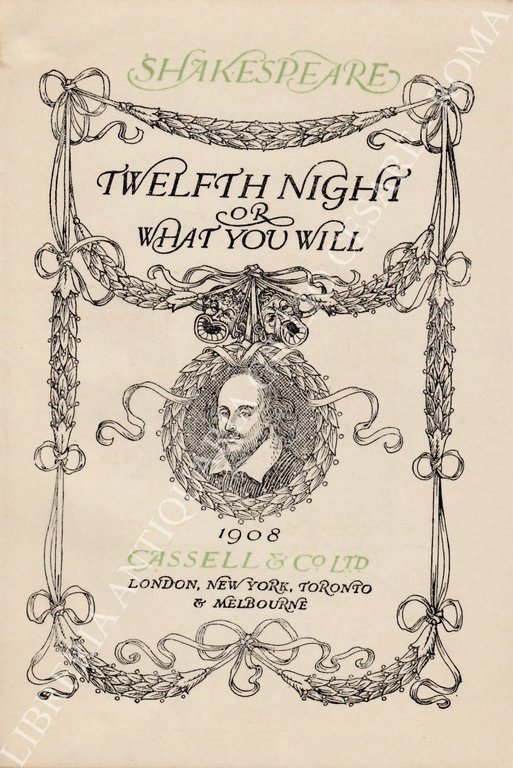 SHAKESPEARE
TWELFTH NIGHT
OR
WHAT YOU WILL
1908
CASSELL & CO LTD
LONDON, NEW YORK, TORONTO
& MELBOURNE